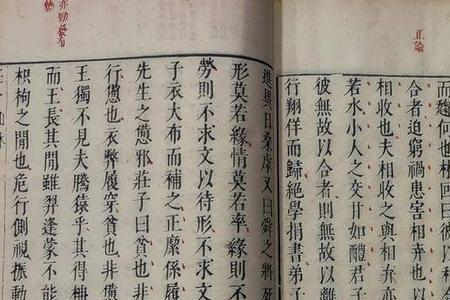 正論
而趨何也林回曰彼以
合者迫窮禍患害相弃也以
相收也夫相收之與相弃亦
若水小人之交甘如醴君子
彼無故以合者則無故以離
行翔佯而歸絕學捐書弟子
進異日桑虖又曰舜之將死
形莫若緣情莫若率緣則不
勞則不求文以待形不求文
子衣大布而補之正緳係履
先生之憊邪莊子曰貧也非
行憊也衣弊履穿貧也非憊
王獨不見夫騰猿乎其得柟
而王長其間雖羿蓬蒙不能
枳枸之間也危行側視振動